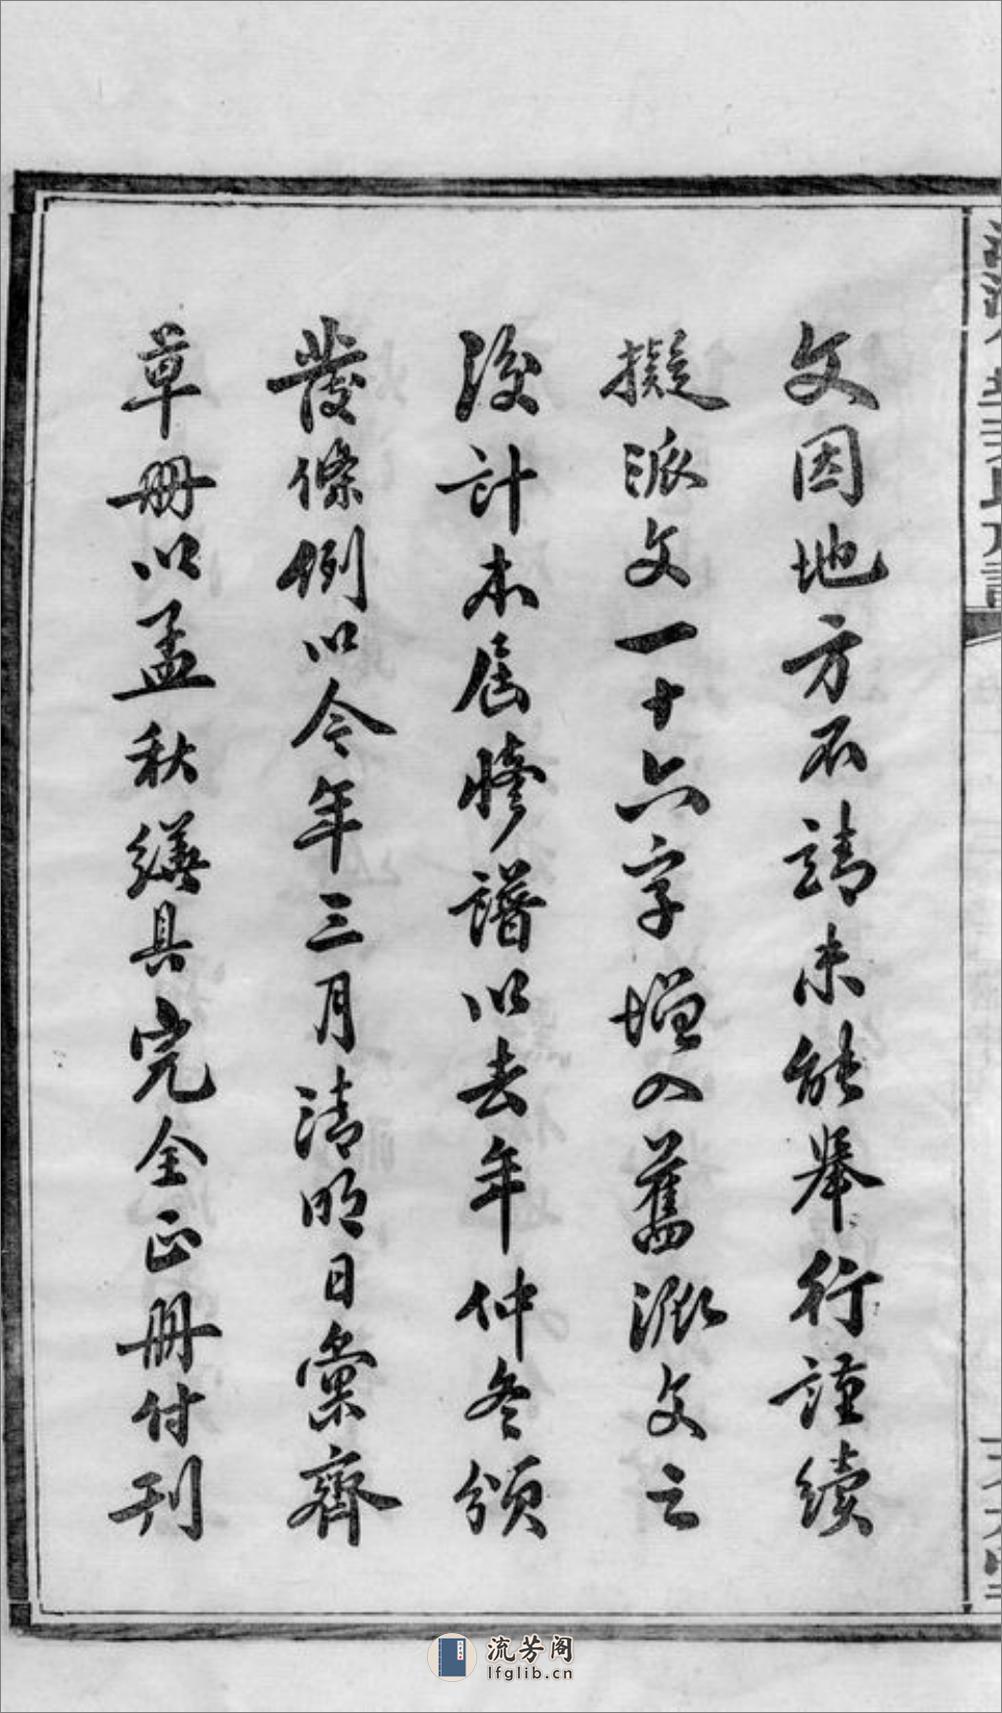 文因地方不靖未能舉行謹續
擬派文一十六字增入舊派文之
後計本屆修譜以去年仲冬頒
發條例以今年三月清明日彙齊
草冊以孟秋繕具完全正冊付刊
流芳阁
lfglib.cn